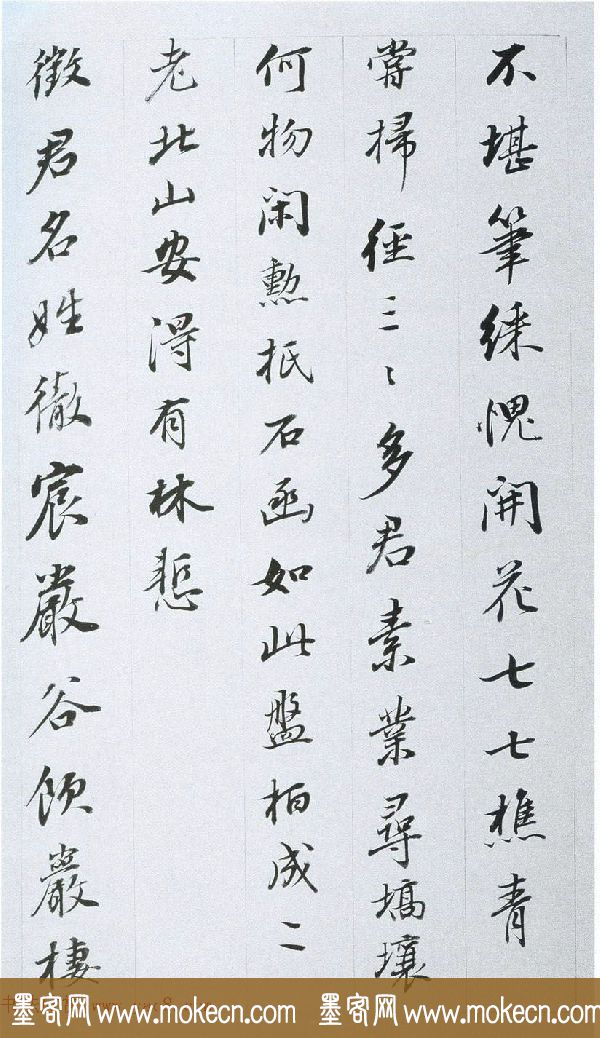 不堪筆綵愧開花七七樵青
嘗掃徑三〻多君素業尋壤
何物閑勳抵石函如此盤桓成二
老北山安得有林慙
徵君名姓徹宸嚴谷飲巖棲
墨客网 www.mokecn.com 墨客网 www.mokecn.com